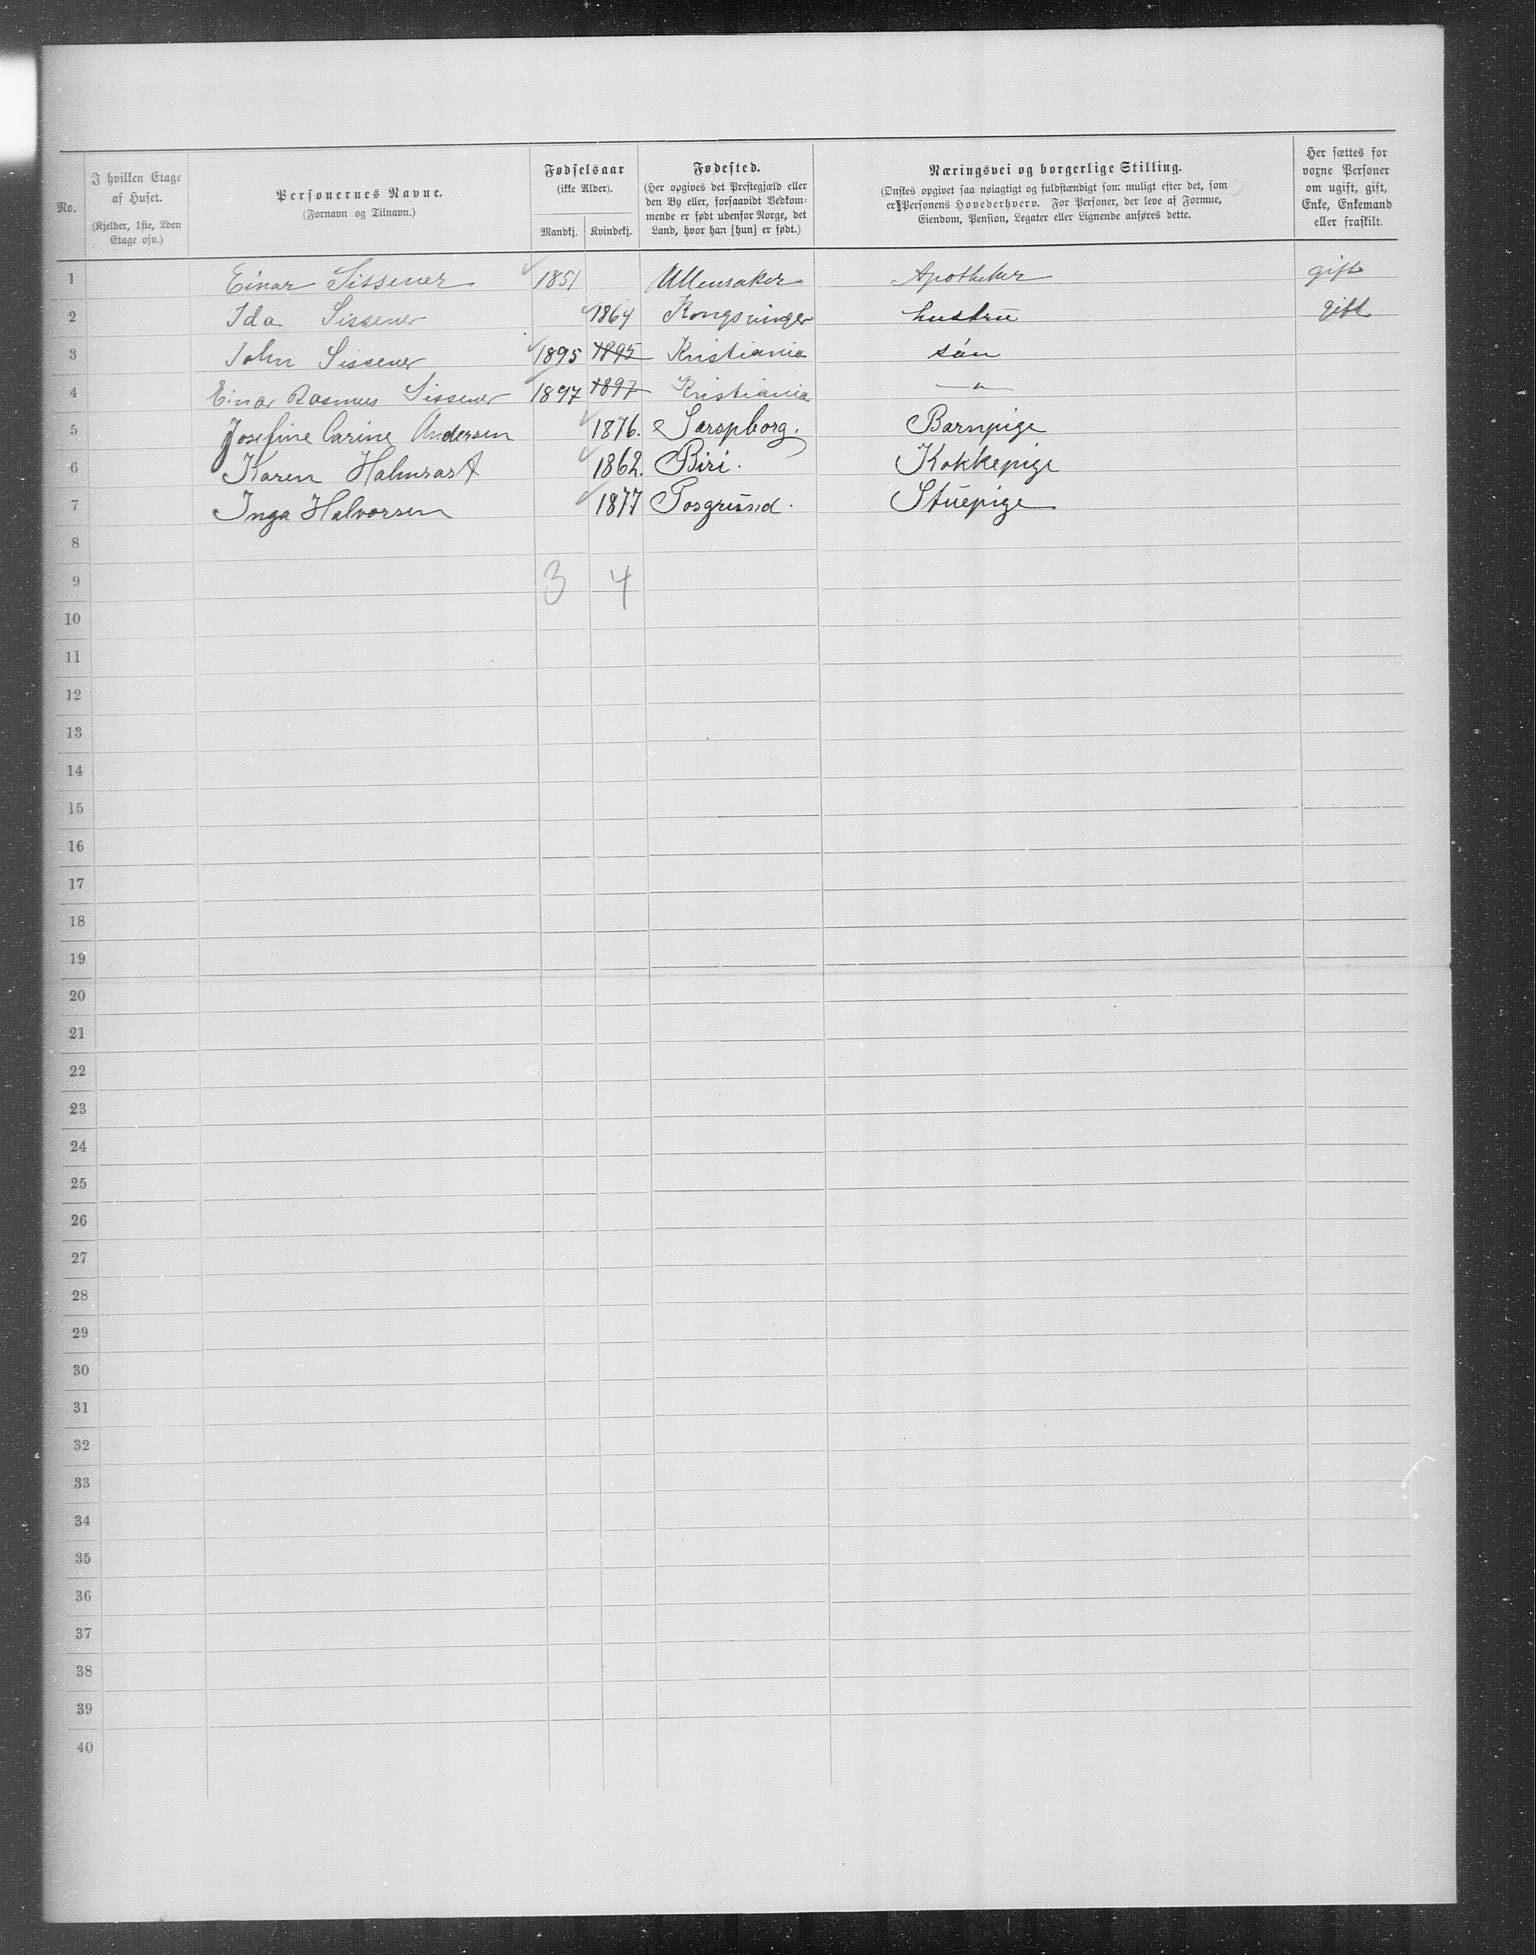 No.
I hvilken Etage af Huset.
(Kjelder, 1ste, 2den Etage osv.)
Personernes Navne.
(Fornavn og Tilnavn.)
Fødselsaar
(ikke Alder).
Mandkj. Kvindekj.
Fødested.
(Her opgives det Prestegjæld eller
den By eller, forsaavidt Vedkom-
mende er født udenfor Norge, det
Land, hvor han [hun] er født.)
Næringsvei og borgerlige Stilling.
(Ønskes opgivet saa nøiagtigt og fuldstændigt som muligt efter det, som
er Personens Hovederhverv. For Personer, der leve af Formue,
Eiendom, Pension, Legater eller Lignende anføres dette.
Her sættes for
vorne Personer
om ugift, gift,
Enke, Enkemand
eller fraskilt.
1 Einar Sissener 1851 Ullensaker Apotheker gift
2 Ida Sissener 1864 Kongsvinger hustru gift
3 John Sissener 1895 1895 Kristiania søn
4 Einar Rasmus Sissener 1897 1897 Kristiania —"—
5 Josefine Carine Andersen 1876. Sarspborg. Barnpige
6 Karen Halmrast 1862. Biri. Kokkepige
7 Inga Halvorsen 1877 Porsgrund. Stuepige
8
9 3 4
10
11
12
13
14
15
16
17
18
19
20
21
22
23
24
25
26
27
28
29
30
31
32
33
34
35
36
37
38
39
40